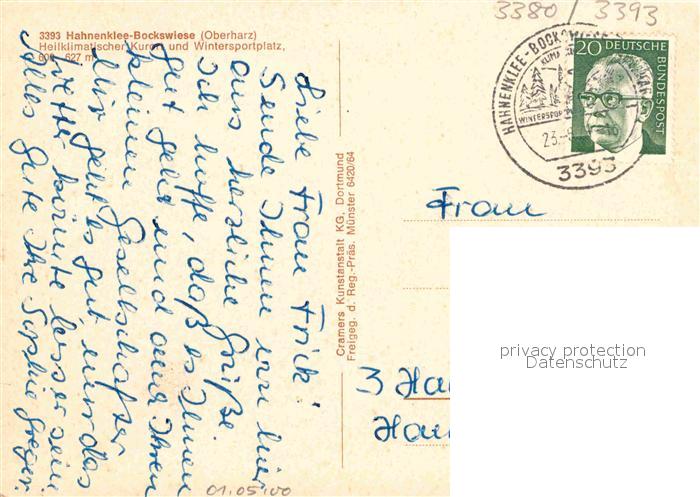 3380 / 3393
3393 Hahnenklee-Bockswiese (Oberharz)
Heilklimatischer Kurort und Wintersportplatz,
600 - 627 m
Liebe Frau Frick!
Sende Ihnen von hier
aus herzliche Grüße
Ich hoffe, daß es Ihnen
gut geht und auch Ihren
kleinen Gesellschafter
Mir geht es gut, nur das
Wetter könnte besser sein
Alles Gute Ihre Sophie
Cramers Kunstanstalt KG, Dortmund
Freigeg. d. Reg.-Präs. Münster 6420/64
HAHNENKLEE-BOCKSWIESE
WINTERSPORT
23.
3393
20 DEUTSCHE
BUNDESPOST
Frau
3 Han
Han
privacy protection
Datenschutz
01.05.00